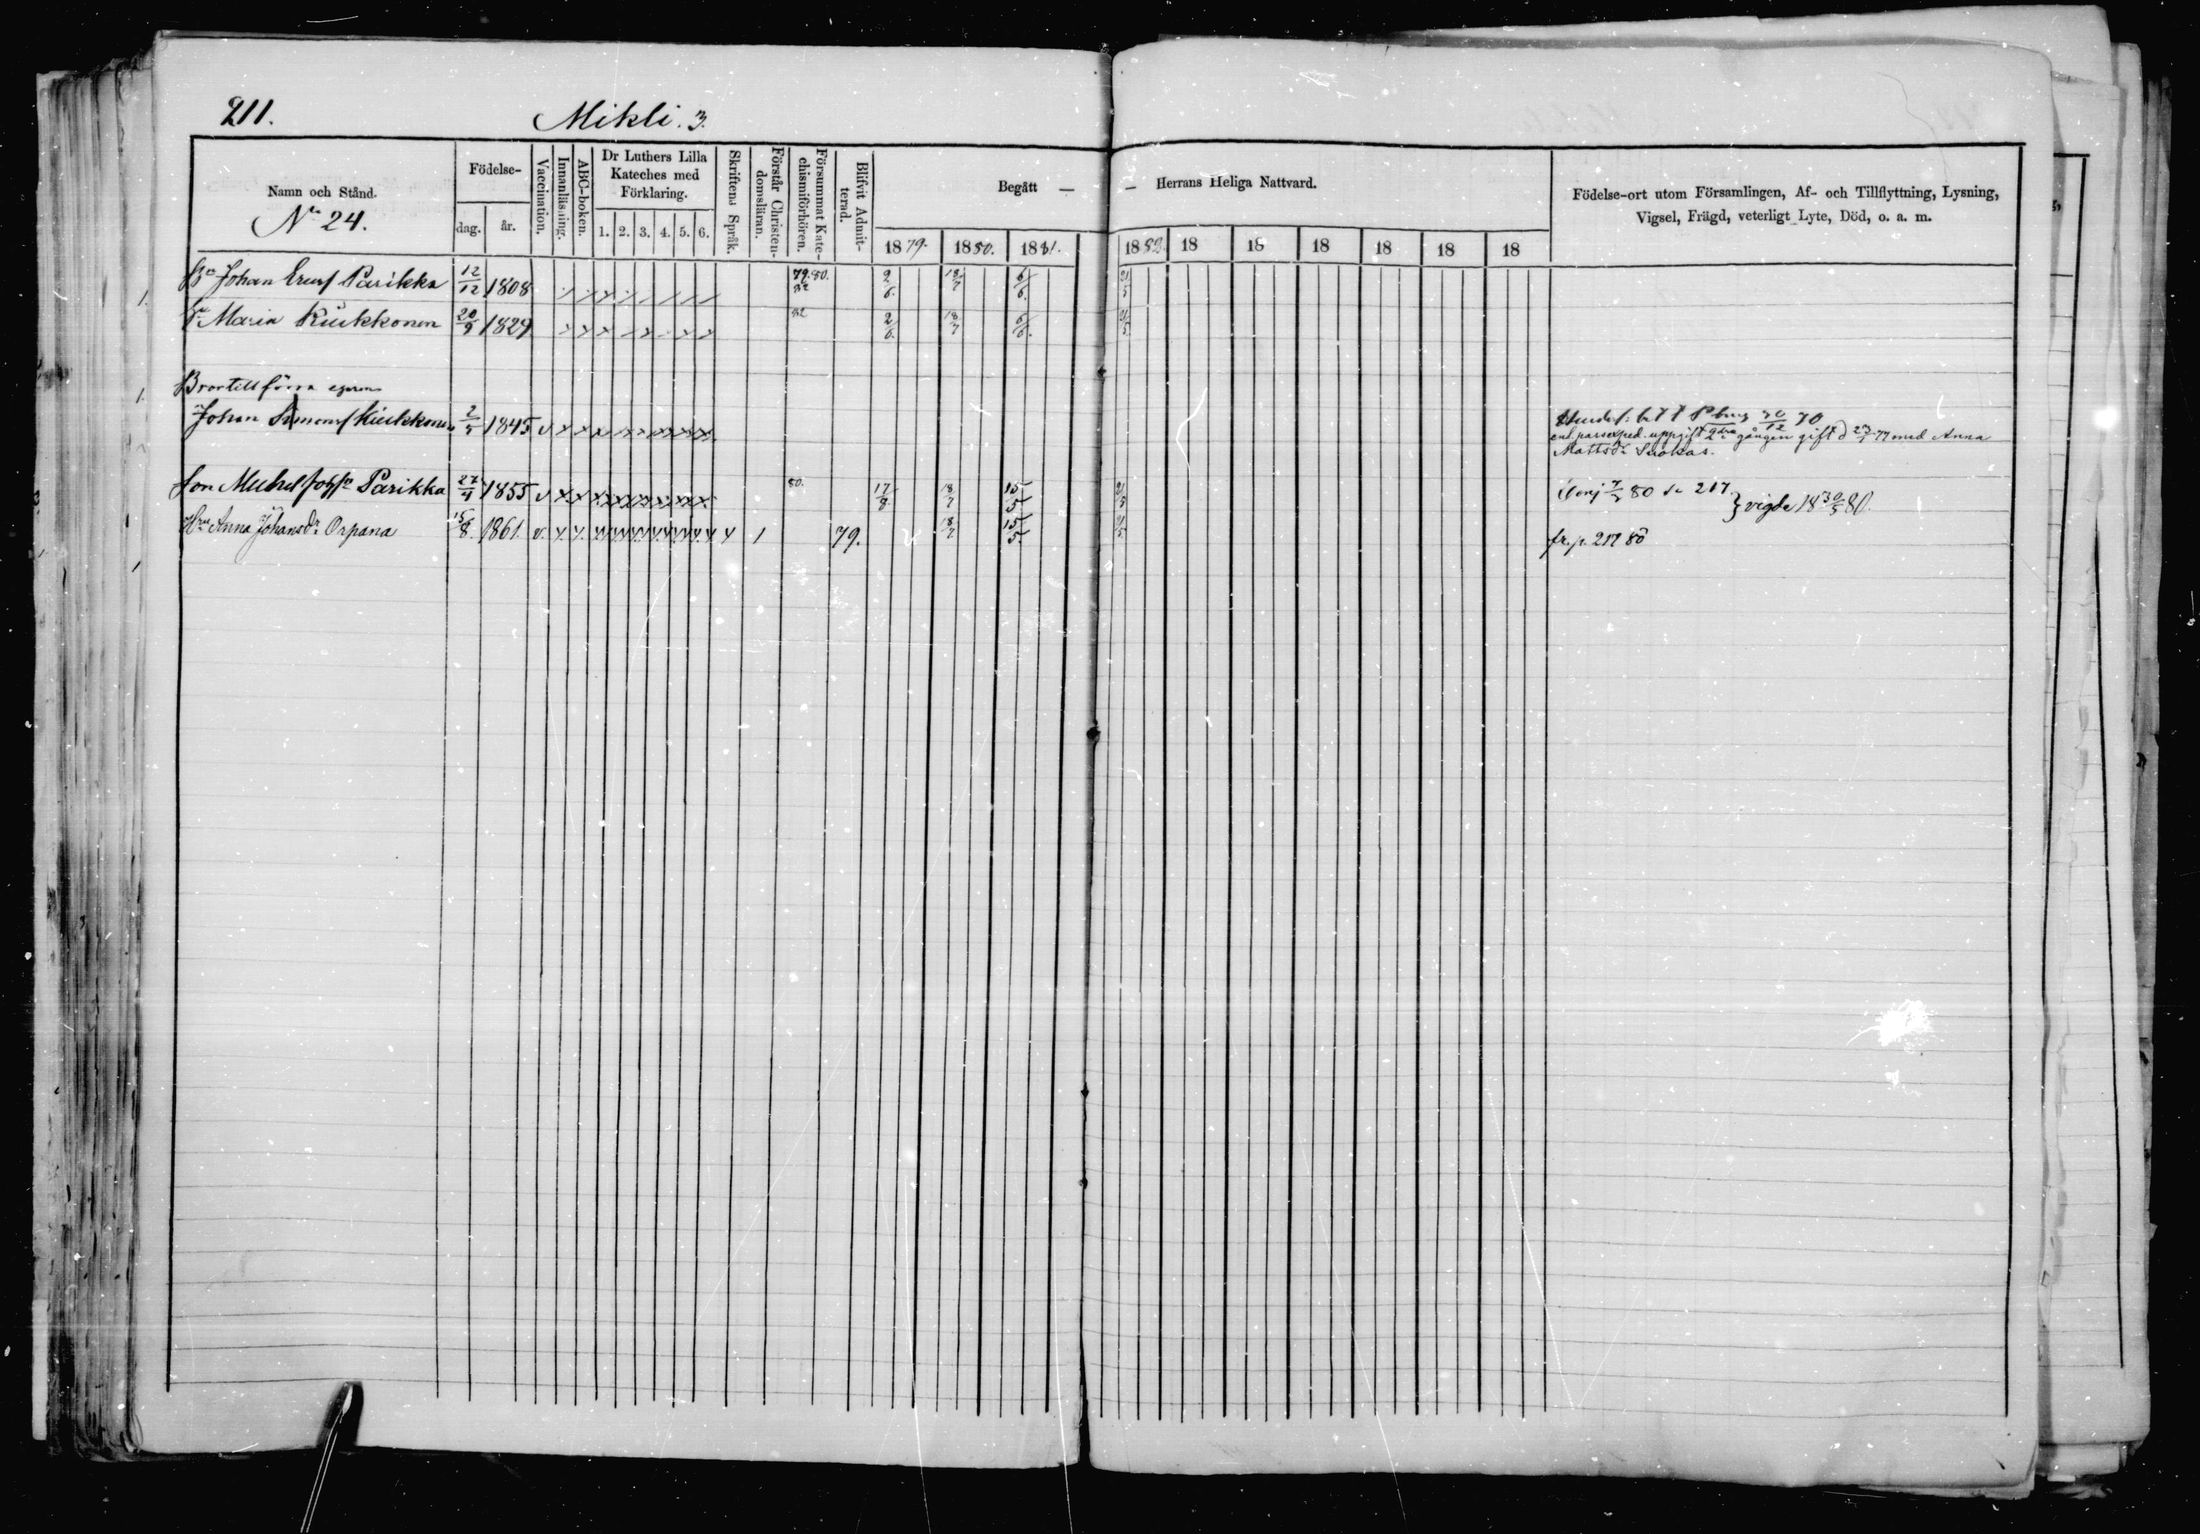 211. Mikli. 3.
Namn och Stånd.
No 24.
Födelse-
dag. år.
Vaccination.
Innanläsning.
ABC-boken.
Dr Luthers Lilla
Kateches med
Förklaring.
1. 2. 3. 4. 5. 6.
Skriftens Språk.
Förstår Christen-
domsläran.
Försummat Kate-
chismiförhören.
Blifvit Admit-
terad.
Begått — — Herrans Heliga Nattvard.
1879. 1880. 1881. 1882. 18 18 18 18 18 18
Födelse-ort utom Församlingen, Af- och Tillflyttning, Lysning,
Vigsel, Frägd, veterligt Lyte, Död, o. a. m.
Johan Ersson Parikka 12/12 1808 79. 80. 82 2/6. 18/7 6/6. 21/5
Maria Kiukkonen 20/9 1829 82 2/6. 18/7 6/6. 21/5
Bror till förra egaren
Johan Simonss Kiukkonen 2/5 1845 v x x x
30/12 70
enl. passexped. uppgift 2dra gången gift d 23/1 77 med Anna
Mattsdr
Son Michel Johss Parikka 27/4 1855 v x x 80. 17/8. 18/7 15/5 21/5 80 217 } vigda 18 30/5 80.
Hru Anna Johansdr Orpana 15/8. 1861. v. 1 79. 18/7 15/5. 21/5 fr. p. 217 80